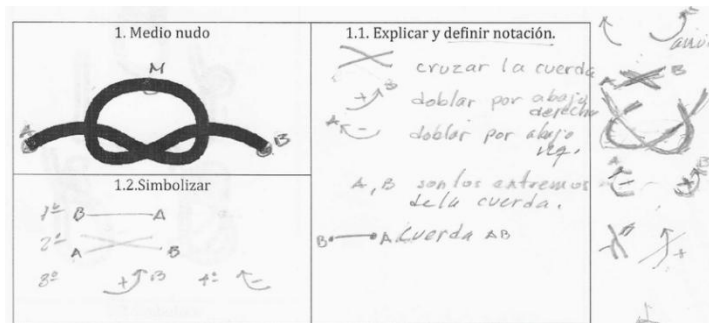 1. Medio nudo
M
A
B
1.2.Simbolizar
1º B A
2º
A B
3º + B 4º -
1.1. Explicar y definir notación.
cruzar la cuerda
+ B doblar por abajo
derecha
A - doblar por abajo
izq.
A, B son los extremos
de la cuerda.
B A Cuerda AB
A B
A B
- +
+